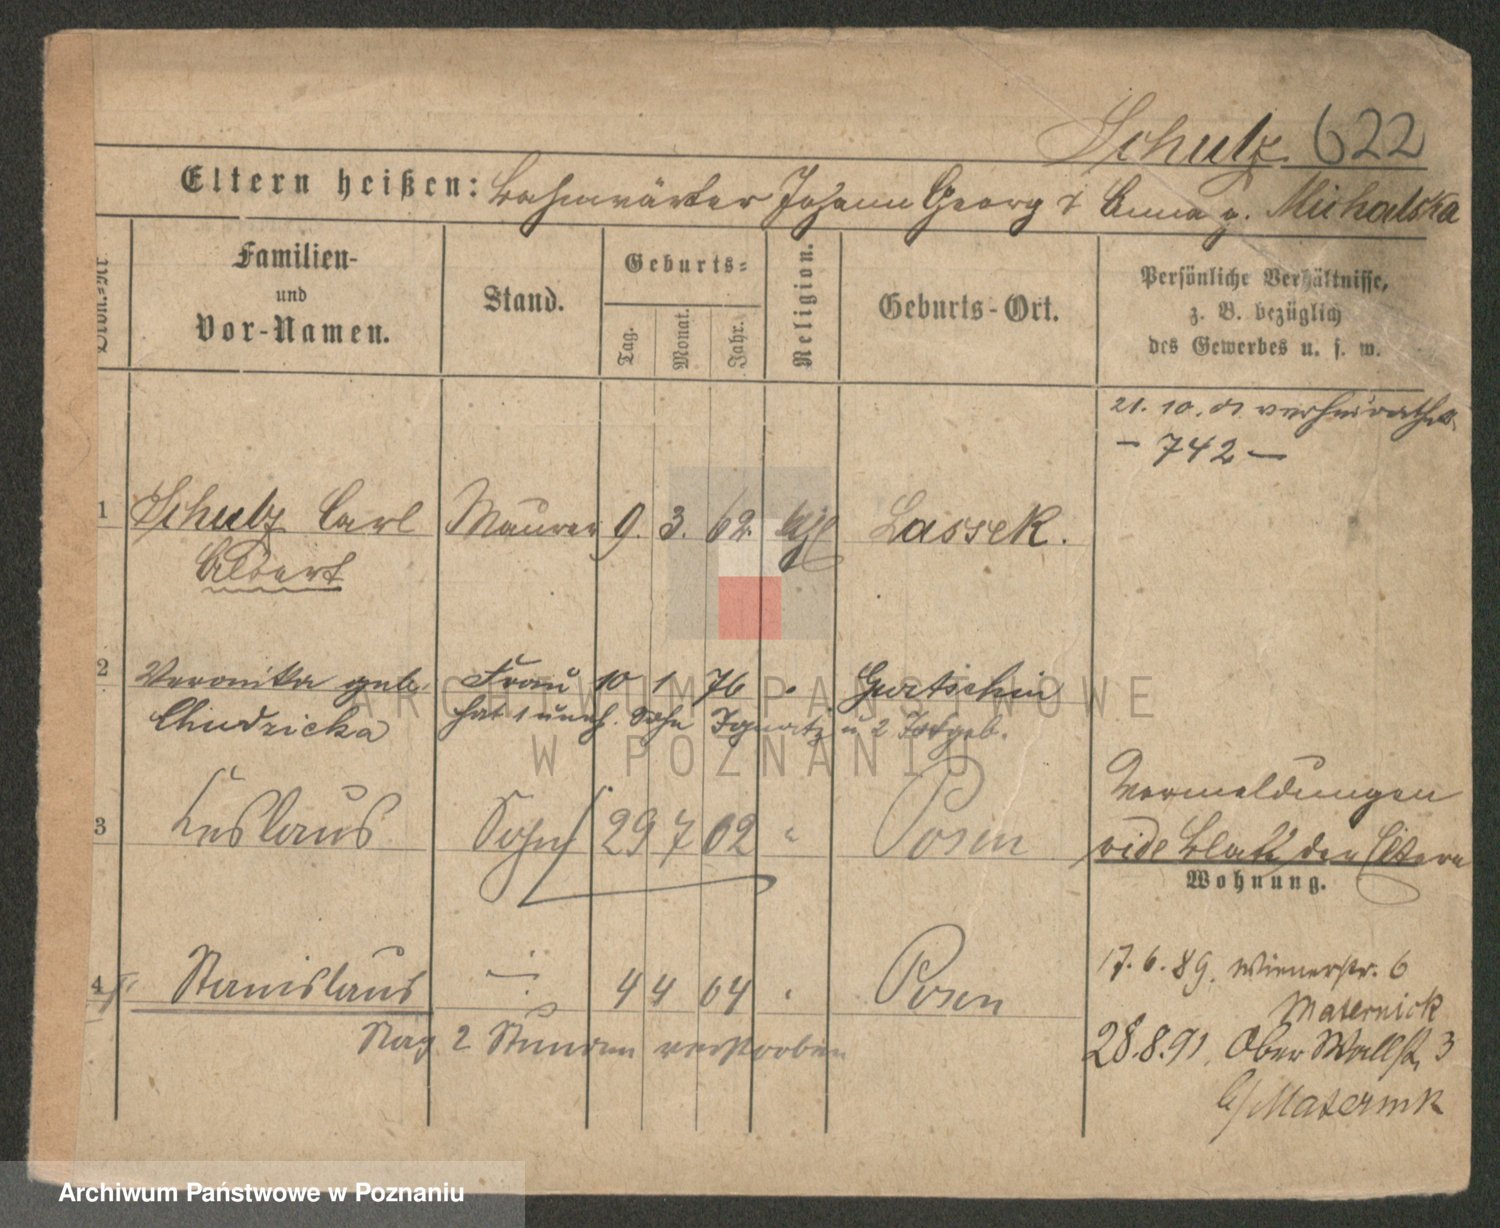 Schulz. 622
Eltern heißen: Bahnwärter Johann Georg & Anna g. Michalska
Ordn.-Nr
Familien-
und
Vor-Namen.
Stand.
Geburts-
Tag.
Monat.
Jahr.
Religion.
Geburts-Ort.
Persönliche Verhältnisse,
z. B. bezüglich
des Gewerbes u. s. w.
21. 10. 01 verheirathet
– 742 –
1 Schulz Carl Maurer 9. 3. 62. Lassek.
Albert
2 Veronika geb. Frau 10 1 76 " Gurtschin
hat 1 uneh. Sohn Ignatz u 2 Totgeb.
3 Sohn 29 7 02 " Posen
Vermeldungen
vide Blatt der Eltern
Wohnung.
4 Stanislaus 4 4 04 " Posen
Nach 2 Stunden verstorben
17. 6. 89. Wienerstr. 6
Maternick
28.8.91. Ober Wallstr. 3
b/Maternik
ARCHIWUM PAŃSTWOWE
W POZNANIU
Archiwum Państwowe w Poznaniu